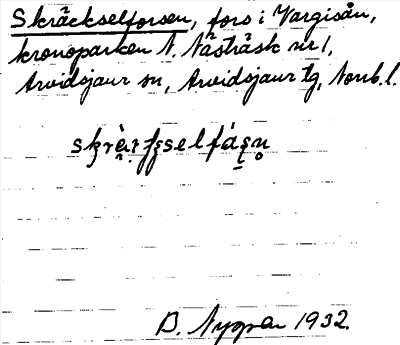 Skräckselforsen, fors i Vargisån,
kronoparken N. Nästräsk nr 1,
Arvidsjaur sn, Arvidsjaur tg, Norrb. l.
B. Nygren 1932.